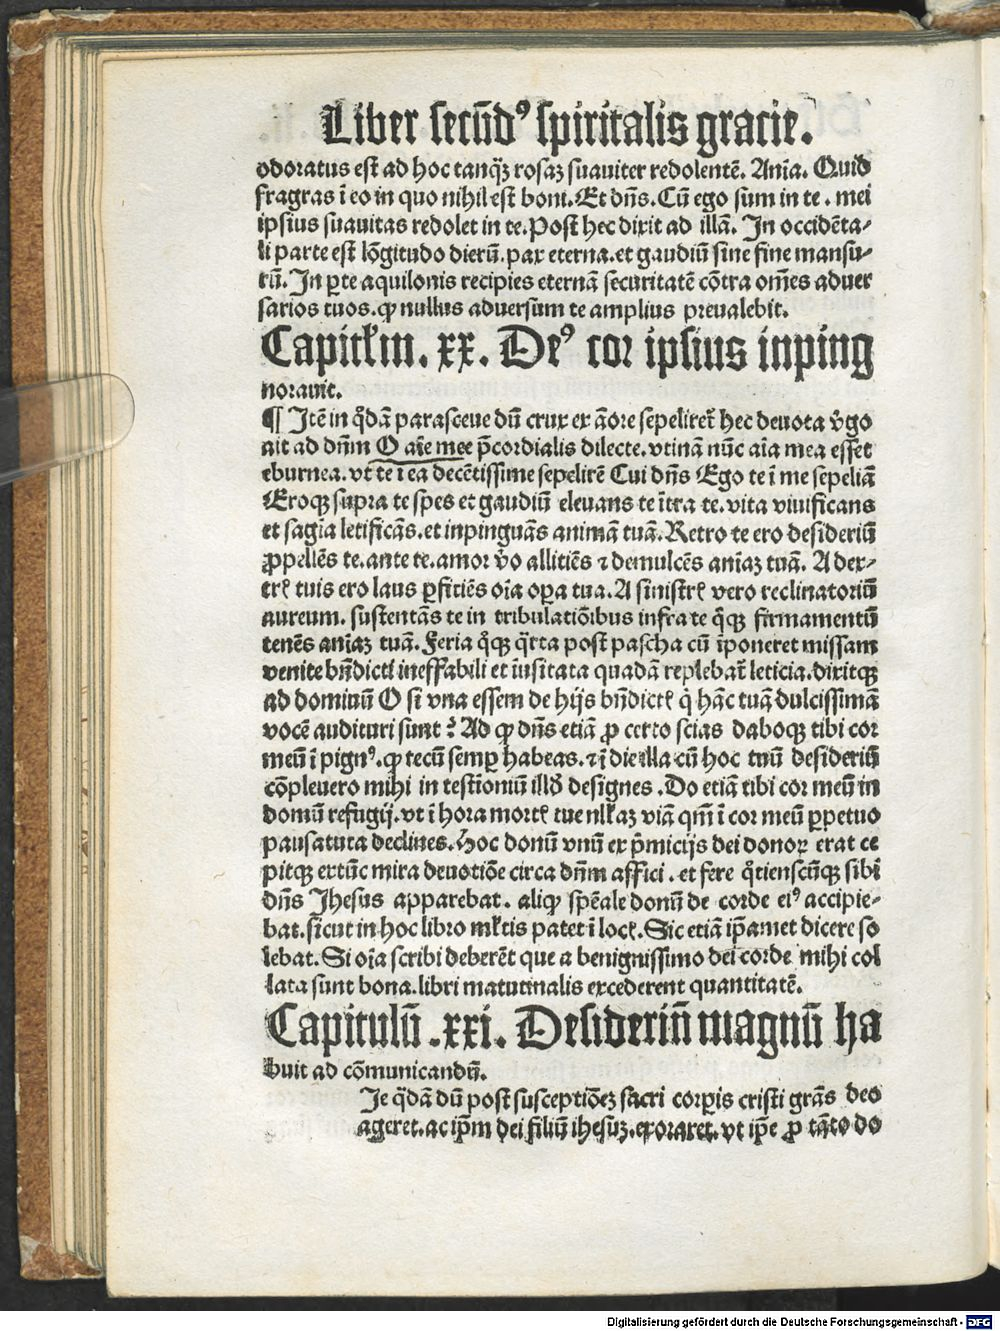 Liber secūdꝰ spiritalis gracie.
odoratus est ad hoc tanqȝ rosaȝ suauiter redolentē. Anīa. Quid
fragras ī eo in quo nihil est boni. Et dn̄s. Cū ego sum in te. mei
ipsius suauitas redolet in te. Post hec dixit ad illā. In occidēta⸗
li parte est lōgitudo dierū. pax eterna. et gaudiū sine fine mansu⸗
rū. In ꝑte aquilonis recipies eternā securitatē cōtra om̄es aduer
sarios tuos. ꝙ nullus aduersum te amplius preualebit.
Capitl̄m. xx. Deꝰ cor ipsius inping
norauit.
¶ Itē in qͦdā parasceue dū crux ex ꝯ̄ore sepeliret᷑ hec deuota v̄go
ait ad dn̄m O aīe mee p̄cordialis dilecte. vtinā nūc aīa mea esset
eburnea. vt te ī ea decētissime sepelirē Cui dn̄s Ego te ī me sepeliā
Eroqȝ supra te spes et gaudiū eleuans te ītra te. vita viuificans
et sagia letificās. et inpinguās animā tuā. Retro te ero desideriū
ꝓpellēs te. ante te. amor v̄o allitiēs ⁊ demulcēs anīaȝ tuā. A dex⸗
trꝭ tuis ero laus ꝑfitiēs oīa oꝑa tua. A sinistrꝭ vero reclinatoriū
aureum. sustentās te in tribulatiōibus infra te qͦqȝ firmamentū
tenēs anīaȝ tuā. Feria qͦqȝ q̈rta post pascha cū īponeret missam
venite bn̄dicti ineffabili et īusitata quadā replebat᷑ leticia. dixitqȝ
ad dominū O si vna essem de hijs bn̄dictꝭ q̇ hāc tuā dulcissimā
vocē audituri sunt? Ad ꝙ dn̄s etiā ꝓ certo scias daboqȝ tibi cor
meū ī pignꝰ. ꝙ tecū semꝑ habeas. ⁊ ī die illa cū hoc tuū desideriū
cōpleuero mihi in testīoniū illd̄ designes. Do etiā tibi cor meū in
domū refugij. vt ī hora mortꝭ tue nl̄laȝ viā qm̄ ī cor meū ꝑpetuo
pausatura declines. Hoc donū vnū ex p̄micijs dei donoꝝ erat ce
pitqȝ extūc mira deuotiōe circa dn̄m affici. et fere qͦtienscūqȝ sibi
dn̄s Jhesus apparebat. aliꝙ spēale donū de corde eiꝰ accipie⸗
bat. sicut in hoc libro ml̄tis patet ī locꝭ. Sic etiā ip̄amet dicere so
lebat. Si oīa scribi deberēt que a benignissimo dei corde mihi col
lata sunt bona. libri matutinalis excederent quantitatē.
Capitulū .xxi. Desideriū magnū ha
buit ad cōmunicandū.
Ie q̈dā dū post susceptiōeȝ sacri corꝑis cristi grās deo
ageret. ac ip̄m dei filiū ihesuȝ. exoraret. vt ip̄e ꝓ tāto do
Digitalisierung gefördert durch die Deutsche Forschungsgemeinschaft - DFG